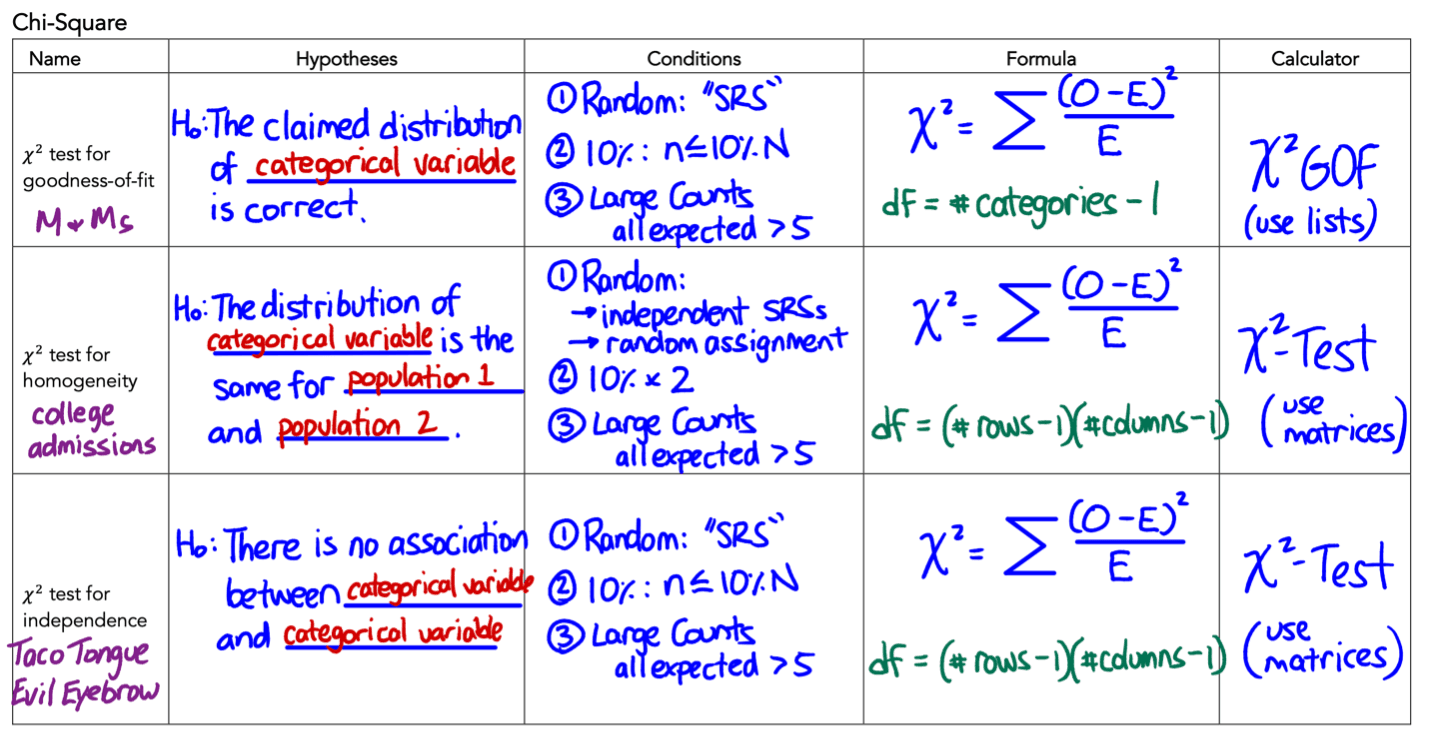 Chi-Square
Name
Hypotheses
Conditions
Formula
Calculator
χ² test for
goodness-of-fit
M&Ms
H₀: The claimed distribution
of categorical variable
is correct.
① Random: "SRS"
② 10%: n ≤ 10% N
③ Large Counts
all expected > 5
χ² = ∑ (O-E)² / E
df = # categories - 1
χ² GOF
(use lists)
χ² test for
homogeneity
college
admissions
H₀: The distribution of
categorical variable is the
same for population 1
and population 2.
① Random:
→ independent SRSs
→ random assignment
② 10% x 2
③ Large Counts
all expected > 5
χ² = ∑ (O-E)² / E
df = (# rows - 1)(# columns - 1)
χ²-Test
(use
matrices)
χ² test for
independence
Taco Tongue
Evil Eyebrow
H₀: There is no association
between categorical variable
and categorical variable
① Random: "SRS"
② 10%: n ≤ 10% N
③ Large Counts
all expected > 5
χ² = ∑ (O-E)² / E
df = (# rows - 1)(# columns - 1)
χ²-Test
(use
matrices)